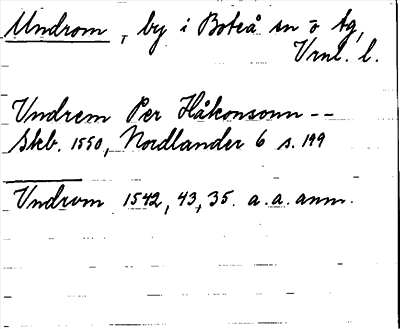 Undrom, by i Boteå sn o tg,
Vnl. l.
Vndrem Per Håkonsonn --
Skb. 1550, Nordlander 6 s. 199
Vndrom 1542, 43, 35. a. a. anm.